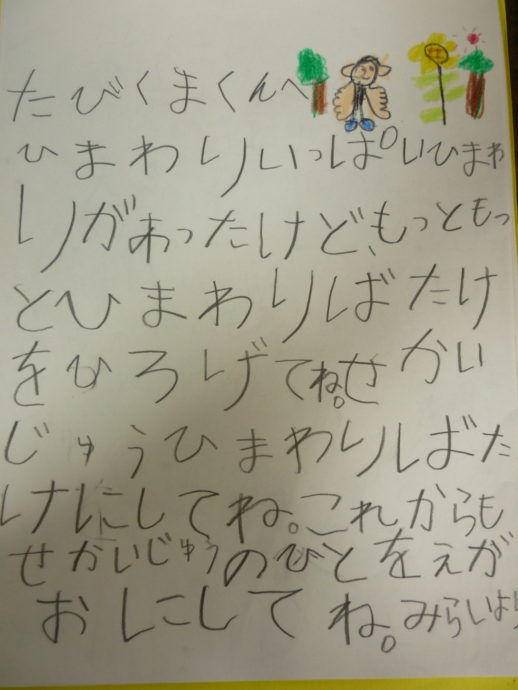 たびくまくんへ
ひまわりいっぱいひまわ
りがあったけど、もっともっ
とひまわりばたけ
をひろげてね。せかい
じゅうひまわりばた
けにしてね。これからも
せかいじゅうのひとをえが
おにしてね。みらいより